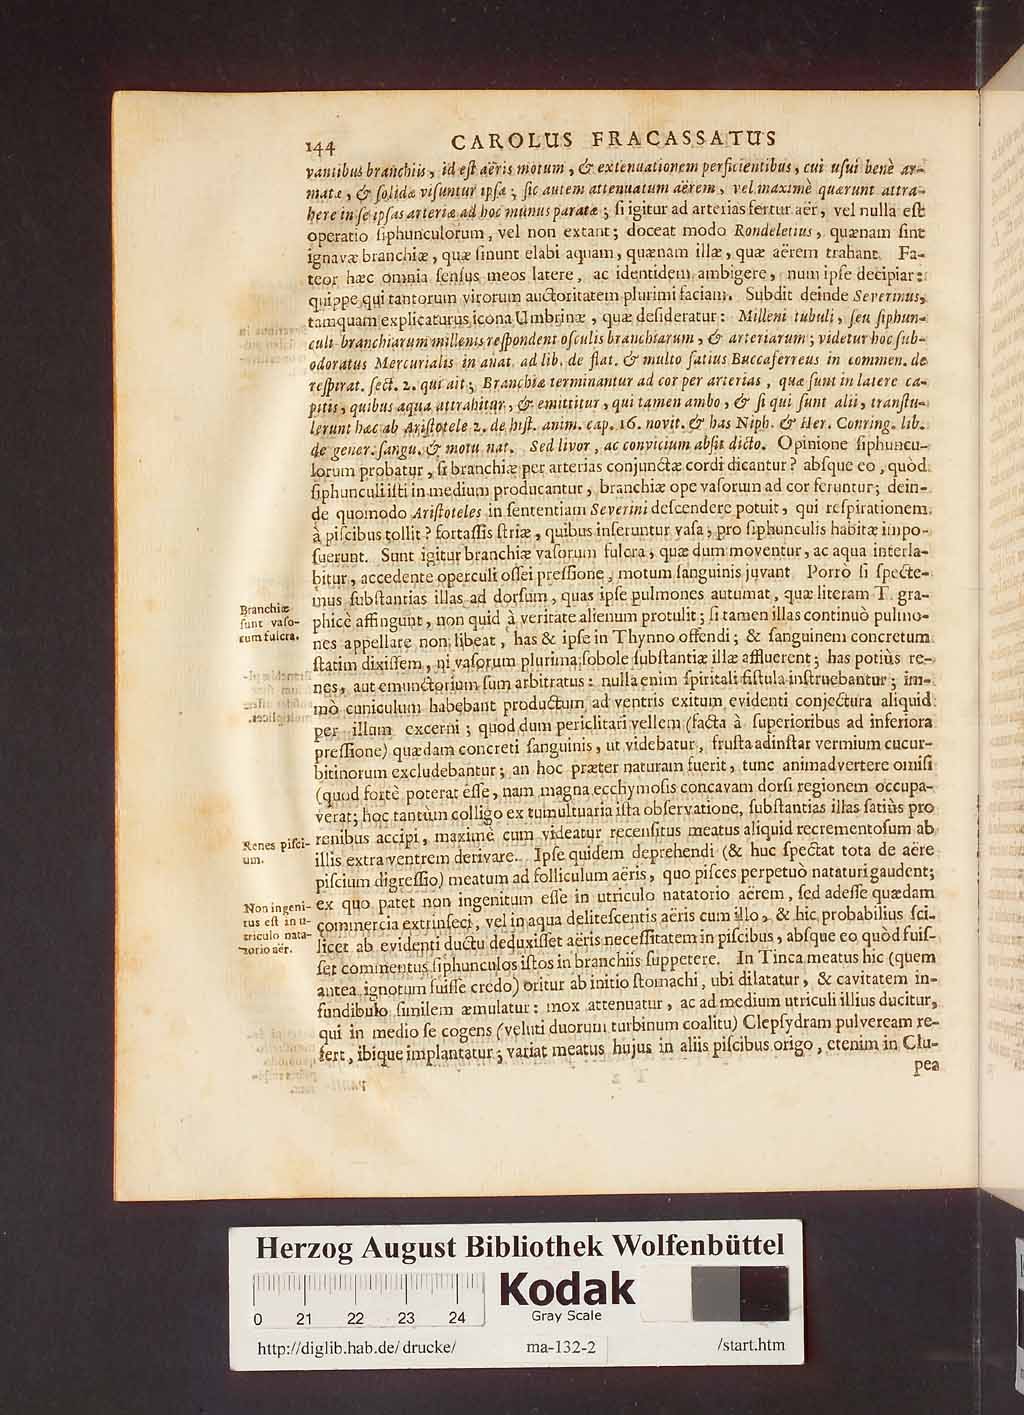 144 CAROLUS FRACASSATUS
vantibus branchiis, id est aëris motum, & extenuationem perficientibus, cui usui benè ar-
matæ, & solidæ visuntur ipsæ; sic autem attenuatum aërem, vel maximè quærunt attra-
here in se ipsas arteriæ ad hoc munus paratæ; si igitur ad arterias fertur aër, vel nulla est
operatio siphunculorum, vel non extant; doceat modo Rondeletius, quænam sint
ignavæ branchiæ, quæ sinunt elabi aquam, quænam illæ, quæ aërem trahant. Fa-
teor hæc omnia sensus meos latere, ac identidem ambigere, num ipse decipiar:
quippe qui tantorum virorum auctoritatem plurimi faciam. Subdit deinde Severinus,
tamquam explicaturus icona Umbrinæ, quæ desideratur: Milleni tubuli, seu siphun-
culi branchiarum millenis respondent osculis branchiarum, & arteriarum; videtur hoc sub-
odoratus Mercurialis in anat. ad lib. de flat. & multo satius Buccaferreus in commen. de
respirat. sect. 2. qui ait; Branchiæ terminantur ad cor per arterias, quæ sunt in latere ca-
pitis, quibus aqua attrahitur, & emittitur, qui tamen ambo, & si qui sunt alii, transtu-
lerunt hæc ab Aristotele 2. de hist. anim. cap. 16. novit. & has Niph. & Her. Conring. lib.
de gener. sangu. & motu nat. Sed livor, ac convicium absit dicto. Opinione siphuncu-
lorum probatur, si branchiæ per arterias conjunctæ cordi dicantur? absque eo, quòd
siphunculi isti in medium producantur, branchiæ ope vasorum ad cor feruntur; dein-
de quomodo Aristoteles in sententiam Severini descendere potuit, qui respirationem
à piscibus tollit? fortassis striæ, quibus inseruntur vasa, pro siphunculis habitæ impo-
suerunt. Sunt igitur branchiæ vasorum fulcra, quæ dum moventur, ac aqua interla-
bitur, accedente operculi ossei pressione, motum sanguinis juvant Porrò si specte-
mus substantias illas ad dorsum, quas ipse pulmones autumat, quæ literam T. gra-
Branchiæ
sunt vaso-
rum fulcra.
phicè affingunt, non quid à veritate alienum protulit; si tamen illas continuò pulmo-
nes appellare non libeat, has & ipse in Thynno offendi; & sanguinem concretum
statim dixissem, ni vasorum plurima sobole substantiæ illæ affluerent; has potiùs re-
nes, aut emunctorium sum arbitratus: nulla enim spiritali fistula instruebantur; im-
mò cuniculum habebant productum ad ventris exitum evidenti conjectura aliquid
per illum excerni; quod dum periclitari vellem (facta à superioribus ad inferiora
pressione) quædam concreti sanguinis, ut videbatur, frusta adinstar vermium cucur-
bitinorum excludebantur; an hoc præter naturam fuerit, tunc animadvertere omisi
(quod fortè poterat esse, nam magna ecchymosis concavam dorsi regionem occupa-
verat; hoc tantùm colligo ex tumultuaria ista observatione, substantias illas satiùs pro
Renes pisci-
um.
renibus accipi, maximè cum videatur recensitus meatus aliquid recrementosum ab
illis extra ventrem derivare. Ipse quidem deprehendi (& huc spectat tota de aëre
piscium digressio) meatum ad folliculum aëris, quo pisces perpetuò nataturi gaudent;
Non ingeni-
tus est in u-
triculo nata-
torio aër.
ex quo patet non ingenitum esse in utriculo natatorio aërem, sed adesse quædam
commercia extrinseci, vel in aqua delitescentis aëris cum illo, & hic probabilius sci-
licet ab evidenti ductu deduxisset aëris necessitatem in piscibus, absque eo quòd fuis-
set commentus siphunculos istos in branchiis suppetere. In Tinca meatus hic (quem
antea ignotum fuisse credo) oritur ab initio stomachi, ubi dilatatur, & cavitatem in-
fundibulo similem æmulatur: mox attenuatur, ac ad medium utriculi illius ducitur,
qui in medio se cogens (veluti duorum turbinum coalitu) Clepsydram pulveream re-
fert, ibique implantatur; variat meatus hujus in aliis piscibus origo, etenim in Clu-
pea
Herzog August Bibliothek Wolfenbüttel
Kodak
Gray Scale
0 21 22 23 24
http://diglib.hab.de/drucke/ ma-132-2 /start.htm